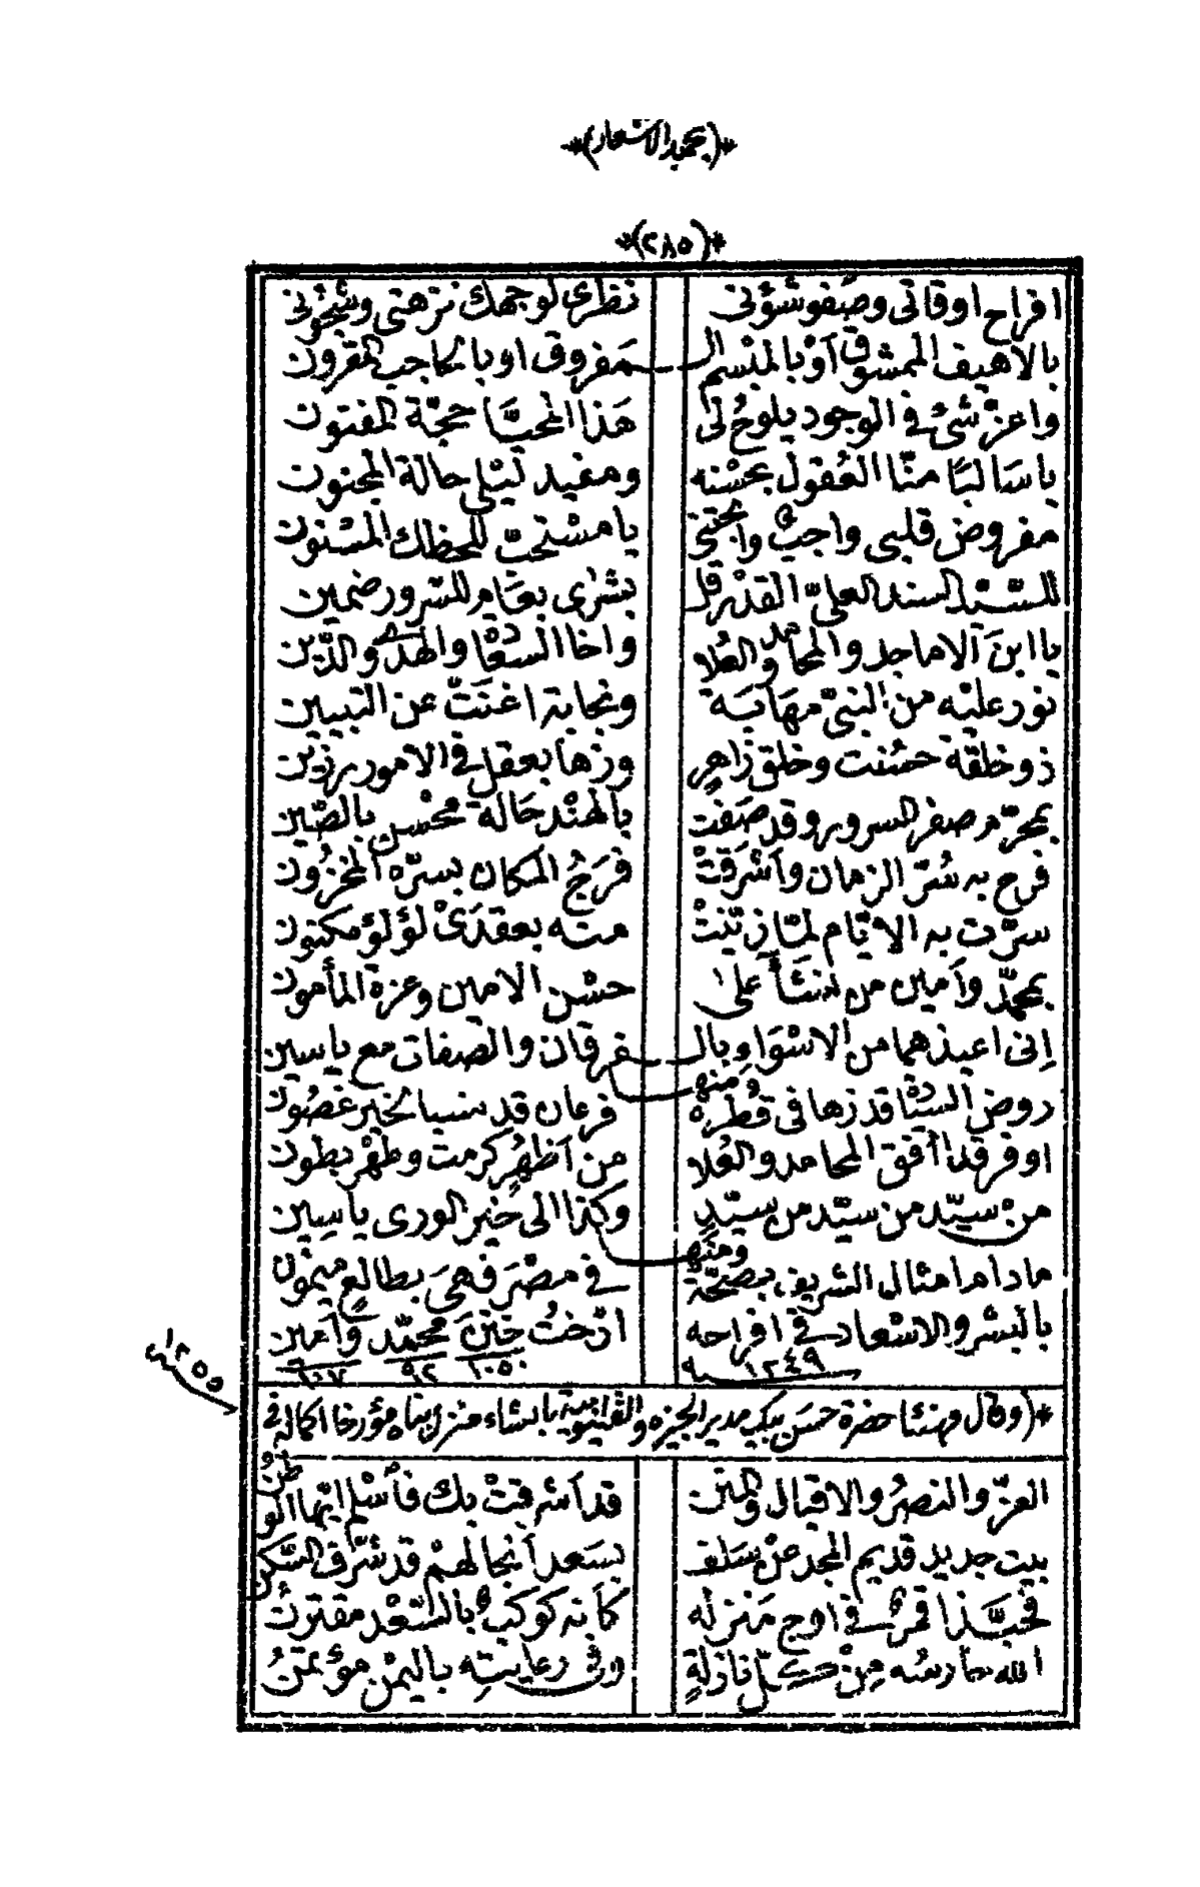 *(بجميد الاشعار)*
*(٢٨٥)*
افراح اوقاتى وصفو شؤنى نظرى لوجهك نزهتى وشجونى
بالاهيف الممشوق أو بالمبسم الـ ـمفروق او بالحاجب المقرون
واعز شئ فى الوجود يلوح لى هذا المحيّا حجّة المفتون
ياسالبًا منّا العقول بحسنه ومفيد ليلى حالة المجنون
مفروض قلبى واجبٌ يا مستحبّ للحظك المسنون
للسّيّد السند العلىّ القدر قل بشرى بعام للسّرور ضمين
يا ابن الاماجد والمحامد والعُلا واخا السّعادة والهدى والدّين
نور عليه من النبىّ مهابة ونجابة اغنت عن التبيين
ذو خلقة حسنت وخلق زاهر وزها بعقل فى الامور رزين
بمحرّم صفر السرور وقد صفت بالهند حالة محسن بالصّين
فرح به سُرّ الزمان وأشرقتْ فرجُ المكان بسرّه المخزون
سرّت به الايّام لمّا زيّنتْ منه بعقدَىْ لؤلؤ مكنون
بمحمّد وأمين من نشأ على حسن الامين وعزة المأمون
إنى اعيذهما من الاسواء وبالـ ـفرقان والصّفات مع ياسين
روض السيادة قد زها فى قطره ومنه فرعان قد نسبا لخير غصون
او فرقدا أفق المحامد والعُلا من أظهرٍ كرمت وطهر بطون
من سيّد من سيّد من سيّدٍ وكذا الى خير الورى ياسين
مادام امثال الشريف بصحّة ومنه فى مصر فهى بطالع ميمون
بالبشر والاسعاد فى افراحه ارّختُ ختن محمّد وأمين
سنة ١٢٤٩ ١٠٥٠ ٩٢ ١٠٧
*(وقال مهنئا حضرة حسن بيك مدير الجيزه والقليوبية بانشاء منزل بناه مؤرخا اكماله فى
سنة ١٢٥٥
العزّ والنصرُ والاقبال والمنن قد أشرقتْ بك فأسْلم ايّها الوطنُ
بيت جديد قديم المجد عن سلف بسعد أنجالهم قد شرّف السّكن
فحبّذا قمرٌ فى اوج منزله كأنه كوكبٌ بالسّعد مقترن
الله حارسه مِنْ كلّ نازلةٍ وفى رعايتِه باليمن مؤتمنُ